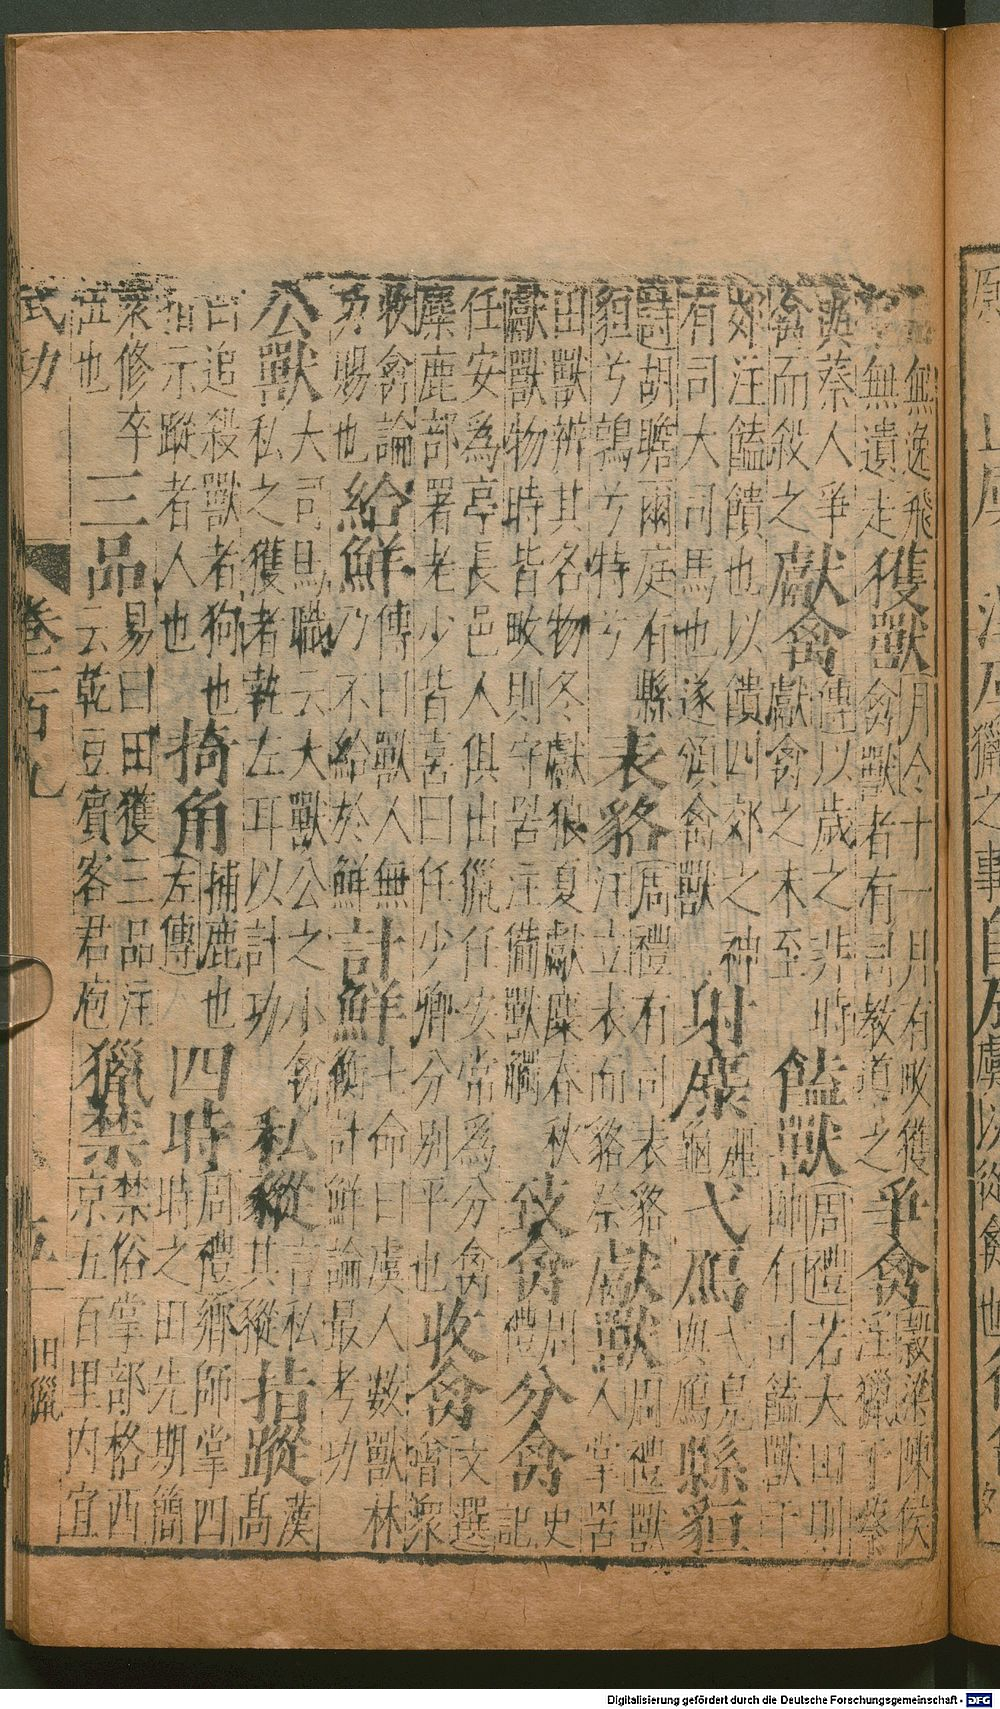 無逸飛無遺走獲獸月令十一月有畋獲禽獸者有司教道之爭禽穀梁陳侯淫獵于蔡
與蔡人爭禽而殺之獻禽傳以歲之非時獻禽之未至饁獸周禮若大田則帥有司饁獸于
郊注饁饋也以饋四郊之神有司大司馬也遂頒禽獸射麋麗龜弋鴈弋鳧與鴈縣貆
詩胡瞻爾庭有縣貆兮鶉兮特兮表貉周禮有司表貉注立表而貉祭獻獸周禮獸人掌罟
田獸辨其名物冬獻狼夏獻麋春秋獻獸物時皆畋則守罟注備獸觸致禽周禮分禽史記
任安為亭長邑人俱出獵任安常為分禽麋鹿部署老少皆喜曰任少卿分別平也收禽文選衆
收禽論功賜也給鮮傳曰獸人無乃不給於鮮計鮮士命曰虞人數獸林衡計鮮論最考功
公獸大司馬職云大獸公之小禽私之獲者執左耳以計功私豵言私其豵指蹤漢高
曰追殺獸者狗也指示蹤者人也掎角捕鹿也左傳四時周禮鄉師掌四時之田先期簡
衆修卒伍也三品易曰田獲三品注云乾豆賓客君庖獵禁禁俗掌部格西京五百里內宜
武功 卷二百九 五 田獵
Digitalisierung gefördert durch die Deutsche Forschungsgemeinschaft - DFG